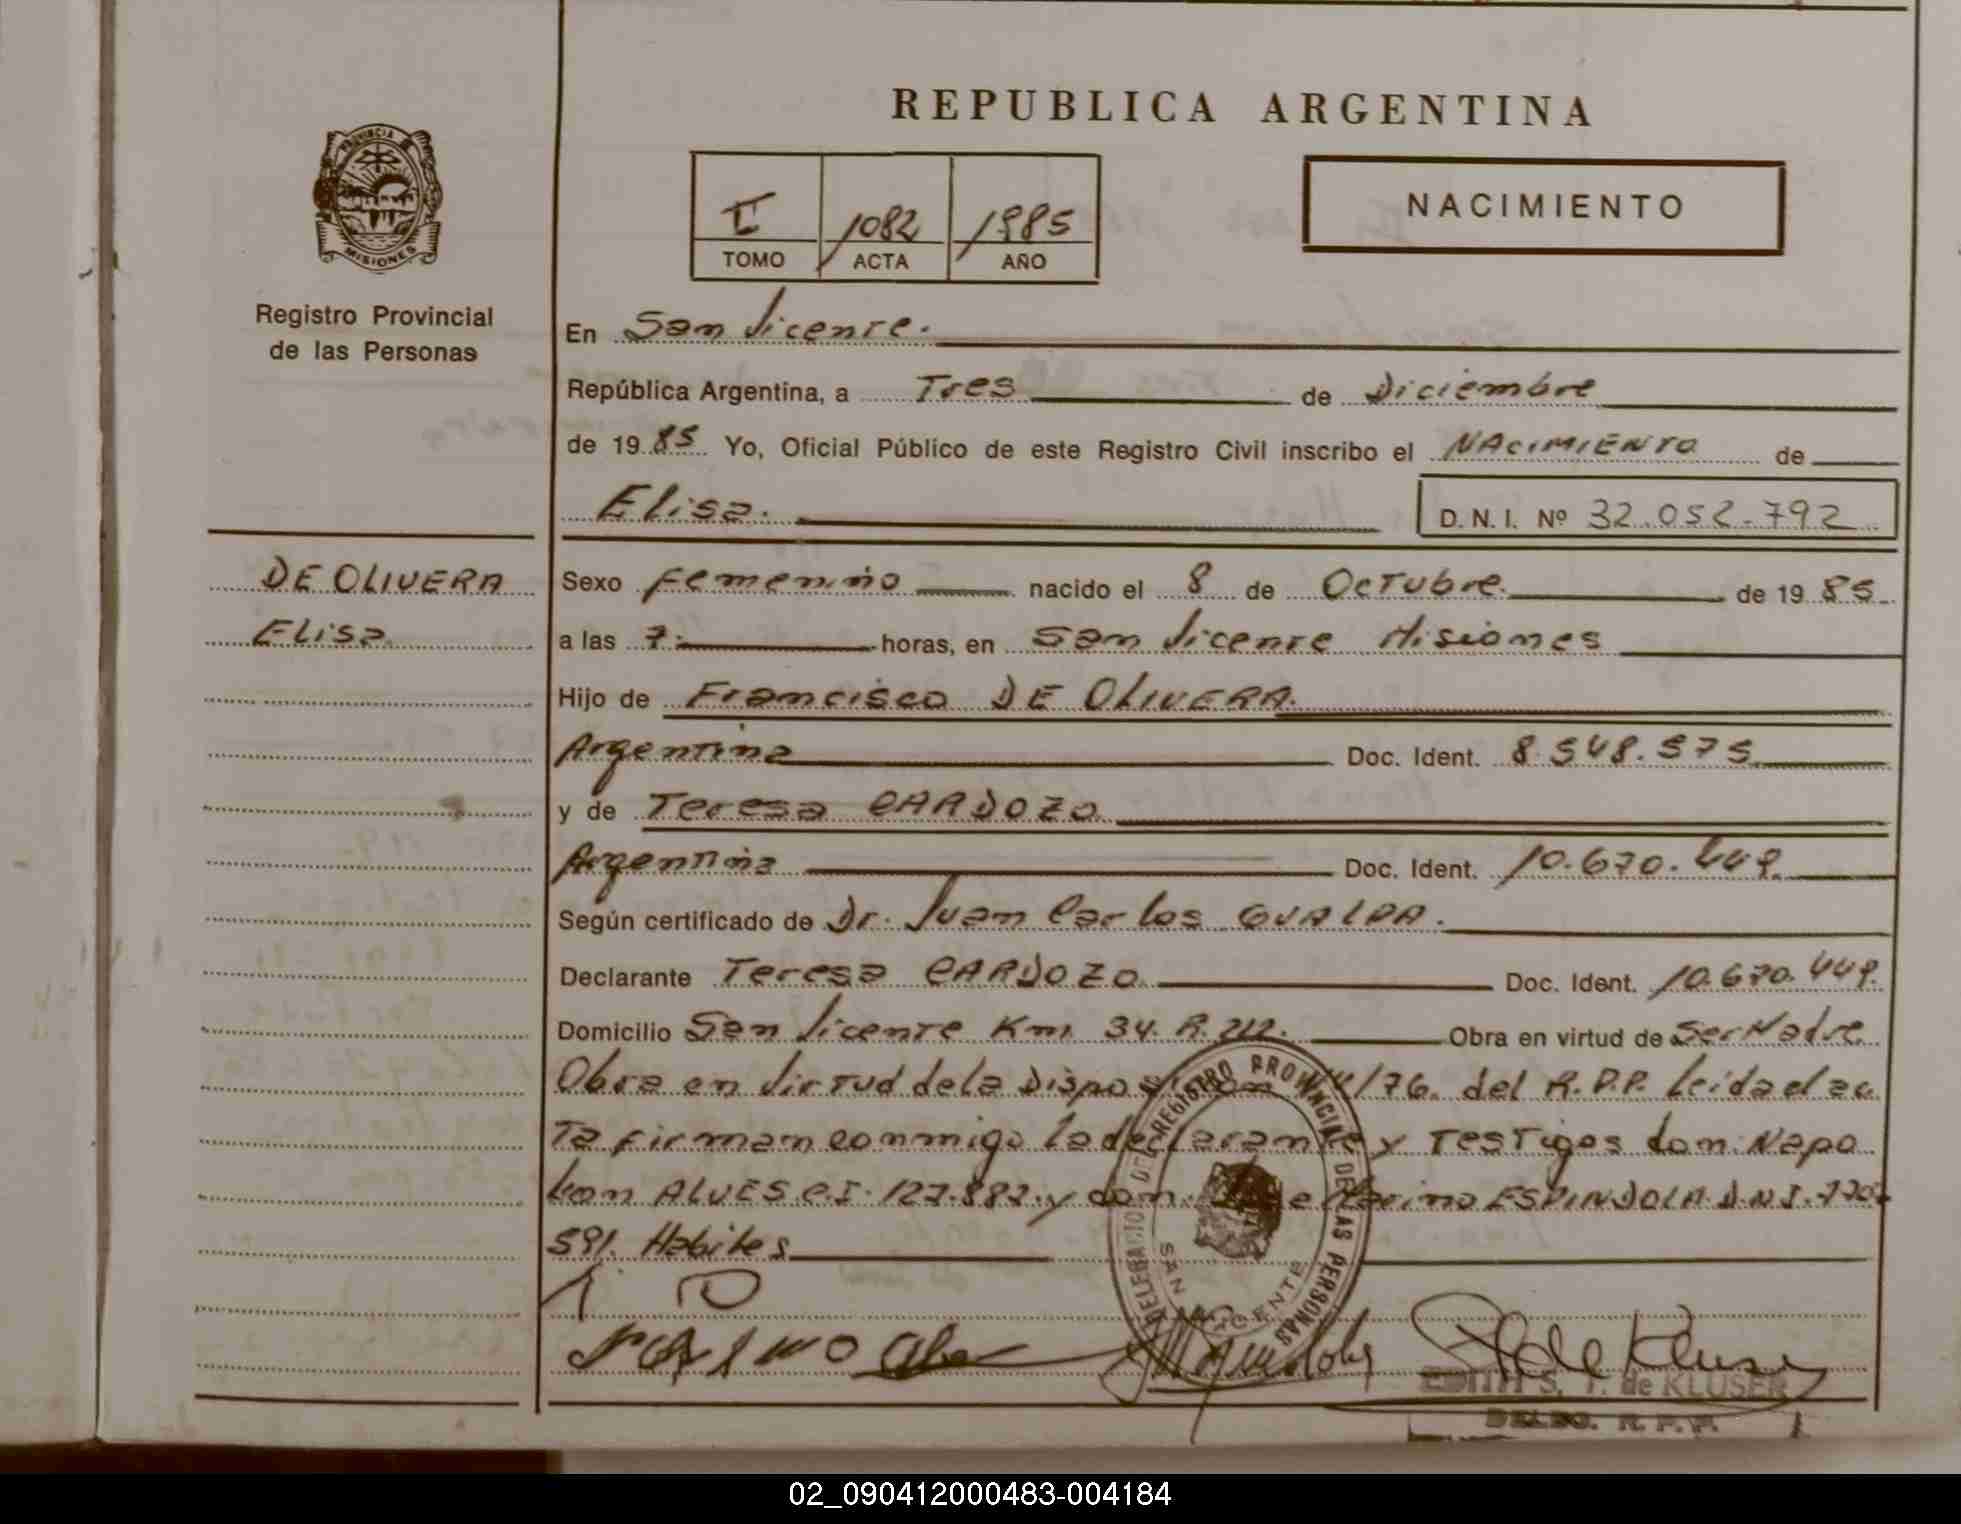 REPUBLICA ARGENTINA
PROVINCIA DE
MISIONES
Registro Provincial
de las Personas
II 1082 1985
TOMO ACTA AÑO
NACIMIENTO
En San Vicente.
República Argentina, a Tres de Diciembre
de 1985 Yo, Oficial Público de este Registro Civil inscribo el NACIMIENTO de
Elisa. D. N. I. Nº 32.052.792
DE OLIVERA
Elisa.
Sexo femenino nacido el 8 de Octubre. de 1985.
a las 7. horas, en San Vicente Misiones
Hijo de Francisco DE OLIVERA.
Argentina Doc. Ident. 8.548.575
y de Teresa CARDOZO
Argentina Doc. Ident. 10.670.449.
Según certificado de Dr. Juan Carlos GUALDA.
Declarante Teresa CARDOZO Doc. Ident. 10.670.449.
Domicilio San Vicente Km. 34. R. 212. Obra en virtud de Ser Madre.
Obra en Virtud dela Disposicion /76. del R.P.P. Leida el ac
Ta firman conmigo la declarante y Testigos don Napo
leon ALVES C.I. 127.887. y don Marino ESPINDOLA D.N.I. 7.707
591. Habiles
DELEGACION DEL REGISTRO PROVINCIAL DE LAS PERSONAS
SAN VICENTE
EDITH S. T. de KLUSER
DELEG. R. P. P.
02_090412000483-004184